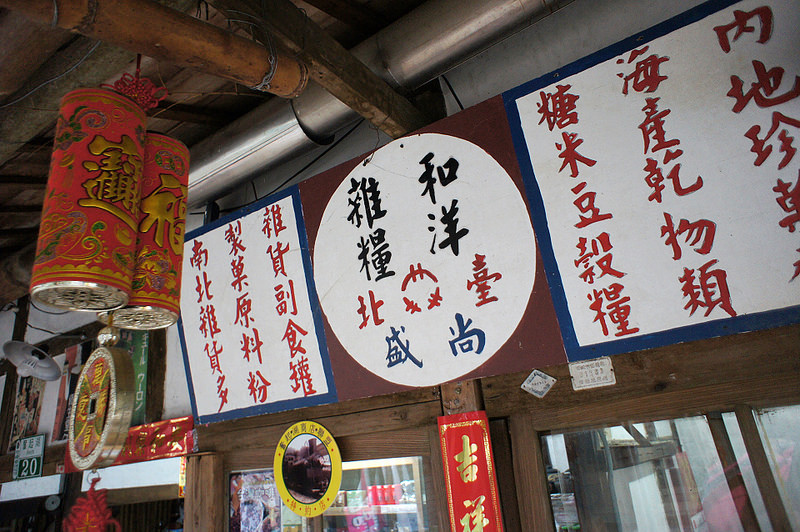 內
地珍菓
海產乾物類
糖米豆穀糧
和洋
雜糧
臺
北
尚
盛
雜貨副食罐
製菓原料粉
南北雜貨多
吉祥
20